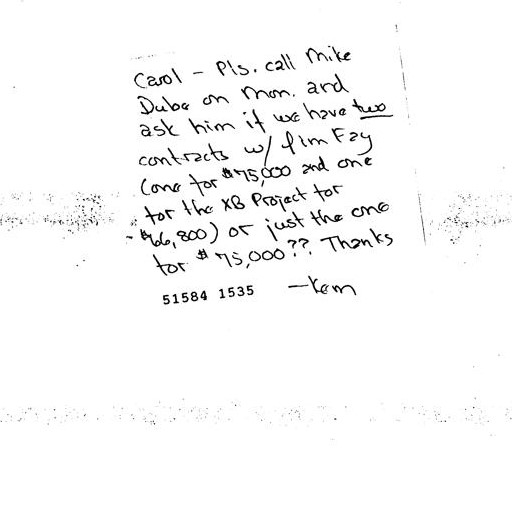 Carol - Pls. call Mike
Dube on Mon. and
ask him if we have two
contracts w/ Jim Fay
(one for $75,000 and one
for the XB Project for
$66,800) or just the one
for $75,000?? Thanks
51584 1535 —Kem